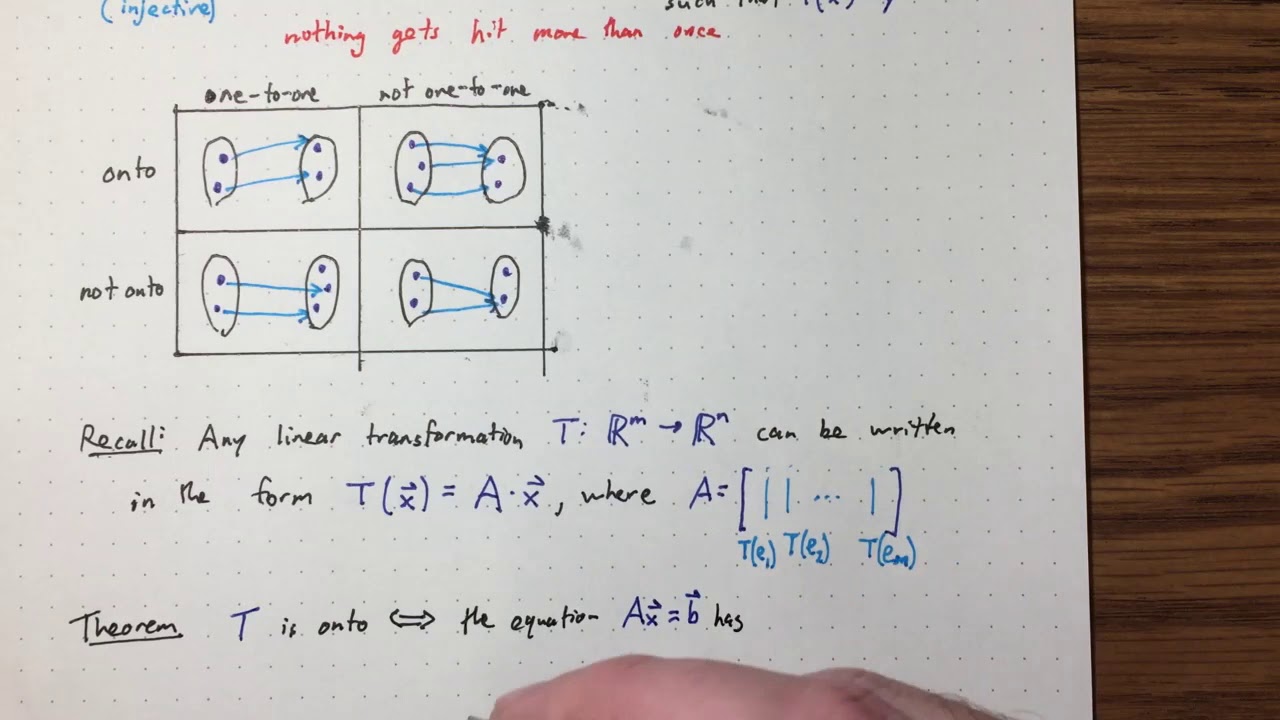 (injective)
such that T(x) = y
nothing gets hit more than once
one-to-one
not one-to-one
onto
not onto
Recall: Any linear transformation T: ℝᵐ → ℝⁿ can be written
in the form T(x⃗) = A·x⃗, where A = [ | | ... | ]
T(e₁) T(e₂) T(eₘ)
Theorem T is onto ⟺ the equation Ax⃗ = b⃗ has